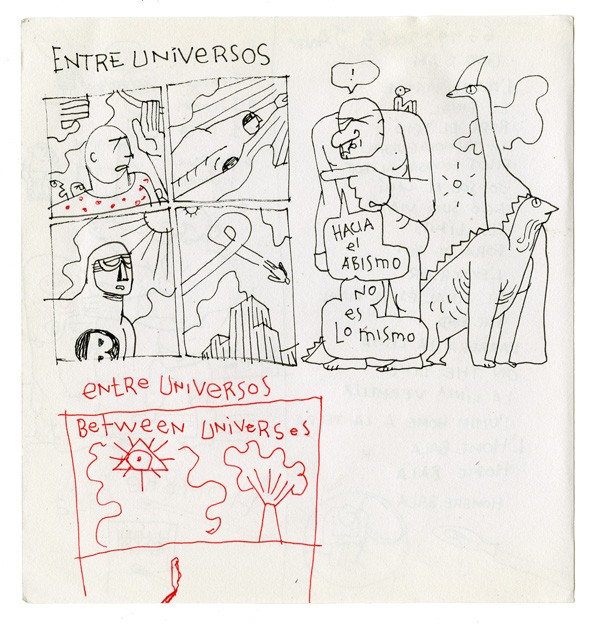 ENTRE UNiVERSOS
!
HACiA
el
ABiSMO
NO
es
Lo miSMO
B
entRe UNiVERSOS
BetWEEN UNiVeRSeS